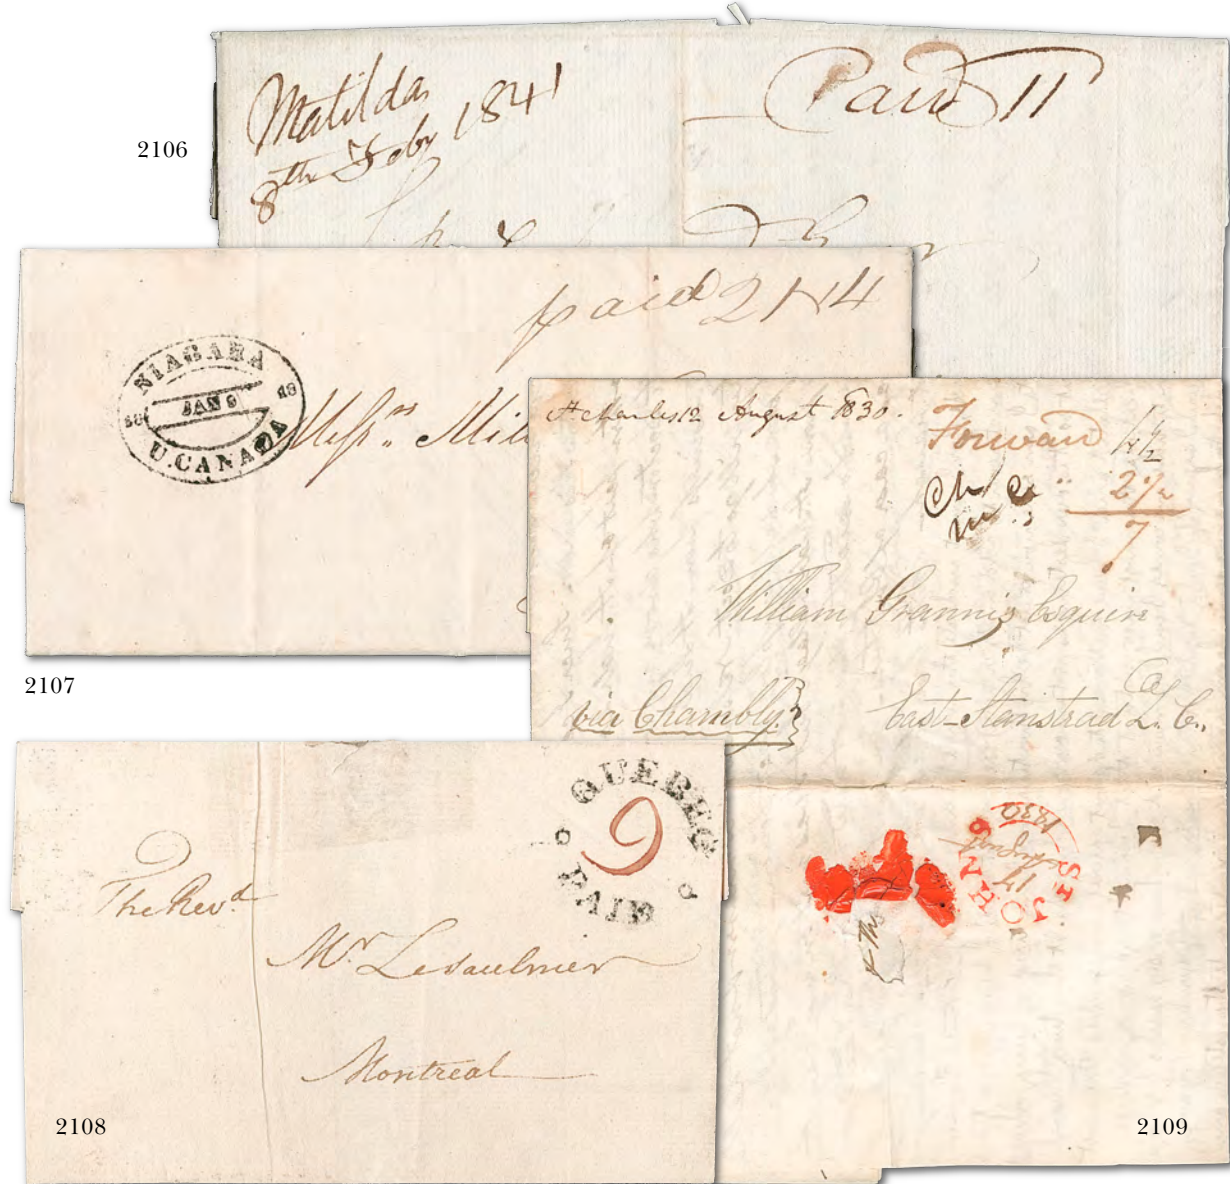 2106
Matilda
8th Feby 1841
Paid 11
paid 2N4
NIAGARA
JAN 9
U.CANADA
Messrs
2107
St Charles 12 August 1830.
Forward 4½
2½
7
William Grannis Esquire
via Chambly
East-Stanstead L. C.
QUEBEC
9
PAID
The Revd
Mr Lesaulnier
Montreal
2108
ST JOHNS
17
August
1830
2109